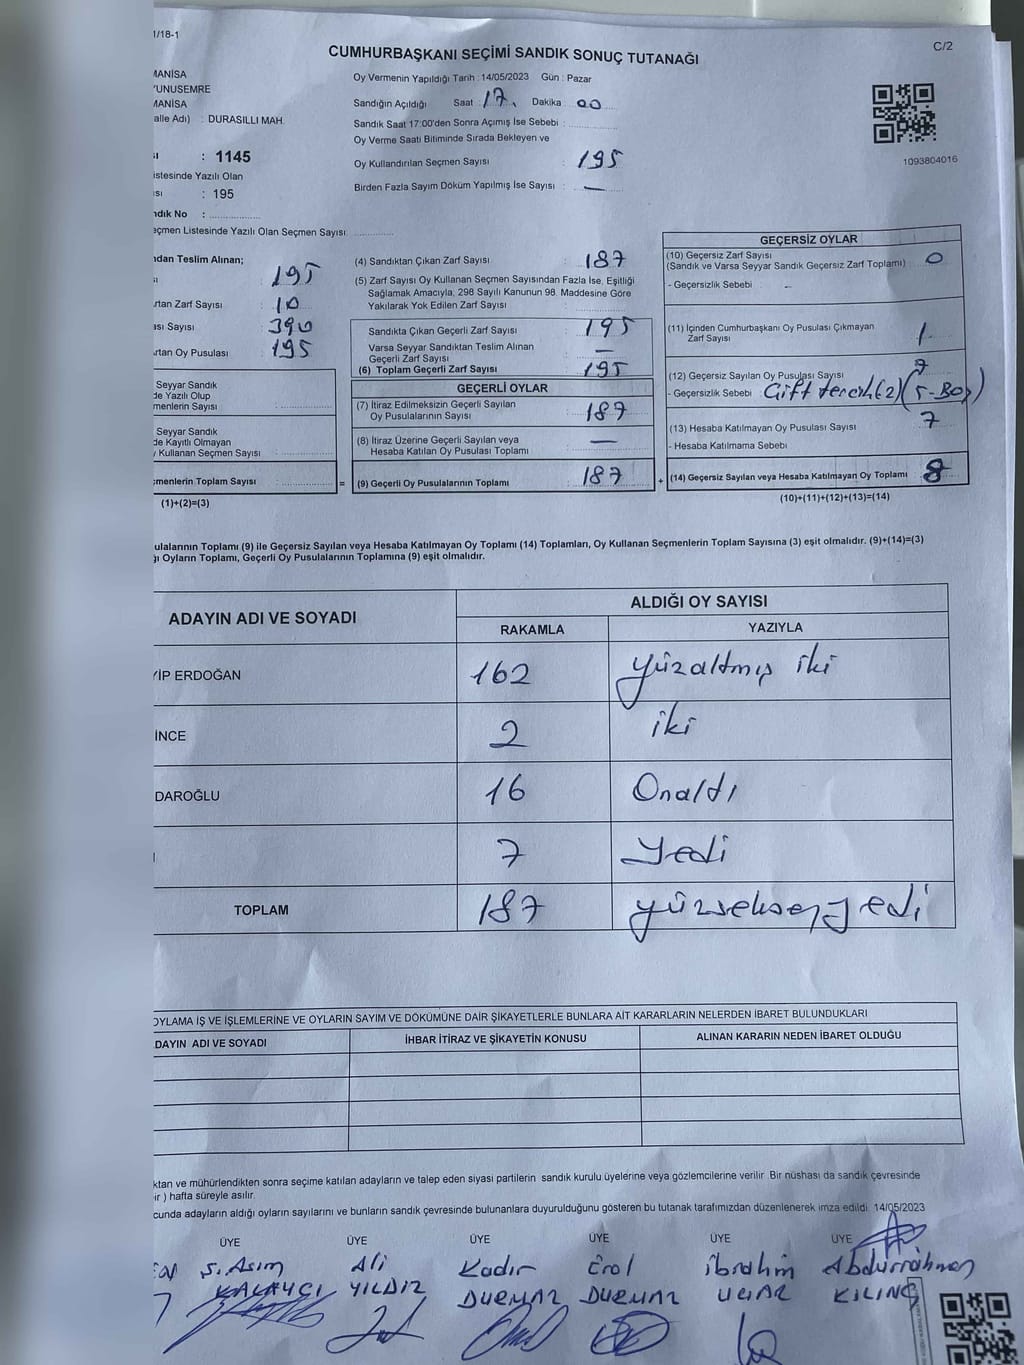 1/18-1
CUMHURBAŞKANI SEÇİMİ SANDIK SONUÇ TUTANAĞI
C/2
MANİSA
YUNUSEMRE
MANİSA
alle Adı) : DURASILLI MAH.
: 1145
istesinde Yazılı Olan
: 195
ndık No : ....................
eçmen Listesinde Yazılı Olan Seçmen Sayısı: ................
Oy Vermenin Yapıldığı Tarih : 14/05/2023 Gün : Pazar
Sandığın Açıldığı Saat : 17. Dakika : 00
Sandık Saat 17:00'den Sonra Açımış İse Sebebi :
Oy Verme Saati Bitiminde Sırada Bekleyen ve
Oy Kullandırılan Seçmen Sayısı : 195
Birden Fazla Sayım Döküm Yapılmış İse Sayısı : —
1093804016
ndan Teslim Alınan;
: 195
rtan Zarf Sayısı : 10
ası Sayısı : 390
rtan Oy Pusulası : 195
Seyyar Sandık
de Yazılı Olup
menlerin Sayısı :
Seyyar Sandık
de Kayıtlı Olmayan
y Kullanan Seçmen Sayısı :
çmenlerin Toplam Sayısı :
(1)+(2)=(3)
(4) Sandıktan Çıkan Zarf Sayısı : 187
(5) Zarf Sayısı Oy Kullanan Seçmen Sayısından Fazla İse, Eşitliği
Sağlamak Amacıyla, 298 Sayılı Kanunun 98. Maddesine Göre
Yakılarak Yok Edilen Zarf Sayısı
Sandıkta Çıkan Geçerli Zarf Sayısı : 195
Varsa Seyyar Sandıktan Teslim Alınan
Geçerli Zarf Sayısı : —
(6) Toplam Geçerli Zarf Sayısı : 195
GEÇERLİ OYLAR
(7) İtiraz Edilmeksizin Geçerli Sayılan
Oy Pusulalarının Sayısı : 187
(8) İtiraz Üzerine Geçerli Sayılan veya
Hesaba Katılan Oy Pusulası Toplamı : —
= (9) Geçerli Oy Pusulalarının Toplamı : 187
GEÇERSİZ OYLAR
(10) Geçersiz Zarf Sayısı
(Sandık ve Varsa Seyyar Sandık Geçersiz Zarf Toplamı) : 0
- Geçersizlik Sebebi : -
(11) İçinden Cumhurbaşkanı Oy Pusulası Çıkmayan
Zarf Sayısı : 1.
(12) Geçersiz Sayılan Oy Pusulası Sayısı : 7
- Geçersizlik Sebebi : Çift tercih (2) (5-Boş)
(13) Hesaba Katılmayan Oy Pusulası Sayısı : 7
- Hesaba Katılmama Sebebi
+ (14) Geçersiz Sayılan veya Hesaba Katılmayan Oy Toplamı : 8
(10)+(11)+(12)+(13)=(14)
ulalarının Toplamı (9) ile Geçersiz Sayılan veya Hesaba Katılmayan Oy Toplamı (14) Toplamları, Oy Kullanan Seçmenlerin Toplam Sayısına (3) eşit olmalıdır. (9)+(14)=(3)
ğı Oyların Toplamı, Geçerli Oy Pusulalarının Toplamına (9) eşit olmalıdır.
ADAYIN ADI VE SOYADI ALDIĞI OY SAYISI
RAKAMLA YAZIYLA
YİP ERDOĞAN 162 yüzaltmış iki
İNCE 2 iki
DAROĞLU 16 Onaltı
7 Yedi
TOPLAM 187 yüzseksenyedi
OYLAMA İŞ VE İŞLEMLERİNE VE OYLARIN SAYIM VE DÖKÜMÜNE DAİR ŞİKAYETLERLE BUNLARA AİT KARARLARIN NELERDEN İBARET BULUNDUKLARI
DAYIN ADI VE SOYADI İHBAR İTİRAZ VE ŞİKAYETİN KONUSU ALINAN KARARIN NEDEN İBARET OLDUĞU
ktan ve mühürlendikten sonra seçime katılan adayların ve talep eden siyasi partilerin sandık kurulu üyelerine veya gözlemcilerine verilir. Bir nüshası da sandık çevresinde
ir ) hafta süreyle asılır.
cunda adayların aldığı oyların sayılarını ve bunların sandık çevresinde bulunanlara duyurulduğunu gösteren bu tutanak tarafımızdan düzenlenerek imza edildi. 14/05/2023
ÜYE ÜYE ÜYE ÜYE ÜYE ÜYE
S. Asım Ali Kadir Erol İbrahim Abdurrahman
KALAYCI YILDIZ DURMAZ DURMAZ UÇAR KILINÇ